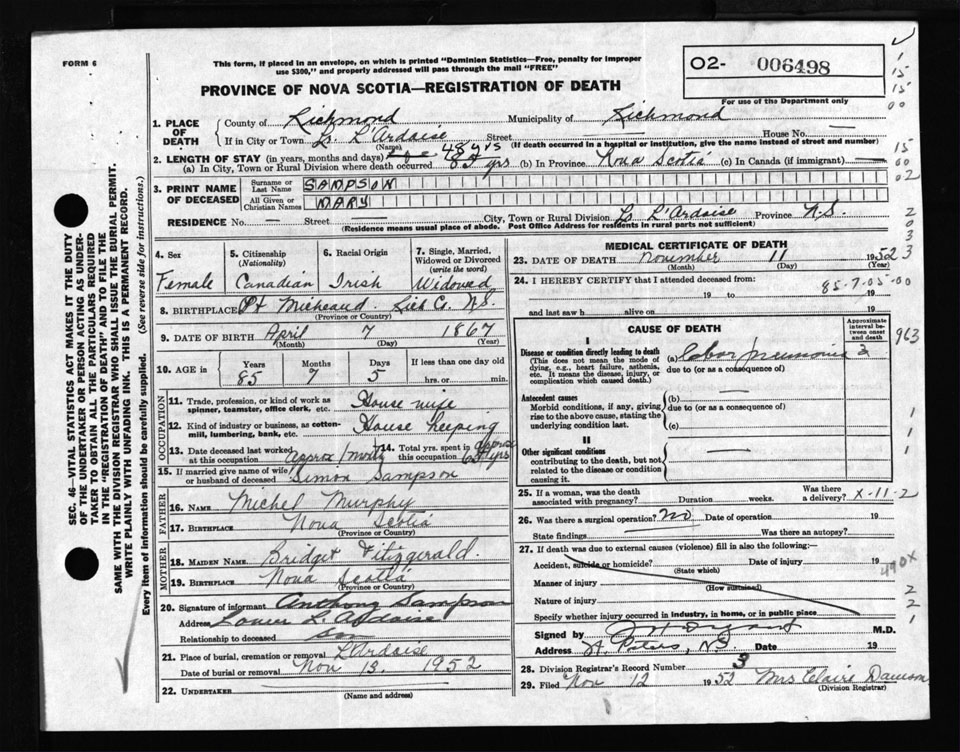 FORM 6
This form, if placed in an envelope, on which is printed "Dominion Statistics—Free, penalty for improper
use $300," and properly addressed will pass through the mail "FREE"
O2- 006498
For use of the Department only
PROVINCE OF NOVA SCOTIA—REGISTRATION OF DEATH
1. PLACE OF DEATH
County of Richmond Municipality of Richmond
If in City or Town Lr. L'Ardoise Street — House No. —
(Name) (If death occurred in a hospital or institution, give the name instead of street and number)
2. LENGTH OF STAY (in years, months and days) 48 yrs
(a) In City, Town or Rural Division where death occurred 85 yrs (b) In Province Nova Scotia (c) In Canada (if immigrant) —
3. PRINT NAME OF DECEASED
Surname or Last Name SAMPSON
All Given or Christian Names MARY
RESIDENCE No. — Street — City, Town or Rural Division Lr L'Ardoise Province N.S.
(Residence means usual place of abode. Post Office Address for residents in rural parts not sufficient)
4. Sex Female
5. Citizenship (Nationality) Canadian
6. Racial Origin Irish
7. Single, Married, Widowed or Divorced (write the word) Widowed
8. BIRTHPLACE Pt Micheaud Rich Co. N.S.
(Province or Country)
9. DATE OF BIRTH April 7 1867
(Month) (Day) (Year)
10. AGE in Years 85 Months 7 Days 5 If less than one day old
hrs. or min.
OCCUPATION
11. Trade, profession, or kind of work as spinner, teamster, office clerk, etc. House wife
12. Kind of industry or business, as cotton-mill, lumbering, bank, etc. House keeping
13. Date deceased last worked at this occupation Approx 1 month
14. Total yrs. spent in this occupation approx yrs
15. If married give name of wife or husband of deceased Simon Sampson
FATHER
16. NAME Michel Murphy
17. BIRTHPLACE Nova Scotia
(Province or Country)
MOTHER
18. MAIDEN NAME Bridget Fitzgerald.
19. BIRTHPLACE Nova Scotia
(Province or Country)
20. Signature of informant Anthony Sampson
Address Lower L'Ardoise
Relationship to deceased Son
21. Place of burial, cremation or removal L'Ardoise
Date of burial or removal Nov 13. 1952
22. UNDERTAKER
(Name and address)
MEDICAL CERTIFICATE OF DEATH
23. DATE OF DEATH November 11 1952
(Month) (Day) (Year)
24. I HEREBY CERTIFY that I attended deceased from:
85-7-05-00
19 to 19
and last saw h alive on 19
CAUSE OF DEATH
Approximate interval between onset and death
I
Disease or condition directly leading to death
(This does not mean the mode of dying, e.g., heart failure, asthenia, etc. It means the disease, injury, or complication which caused death.)
(a) Lobar pneumonia 3
due to (or as a consequence of)
Antecedent causes
Morbid conditions, if any, giving rise to the above cause, stating the underlying condition last.
(b) —
due to (or as a consequence of)
(c)
II
Other significant conditions
contributing to the death, but not related to the disease or condition causing it.
—
25. If a woman, was the death associated with pregnancy? Duration weeks. Was there a delivery? X-11-2
26. Was there a surgical operation? no Date of operation 19
State findings Was there an autopsy?
27. If death was due to external causes (violence) fill in also the following:—
Accident, suicide or homicide? Date of injury 19
(State which)
490X
Manner of injury
(How sustained)
Nature of injury
Specify whether injury occurred in industry, in home, or in public place
Signed by M.D.
Address St. Peters, N.S. Date 19
28. Division Registrar's Record Number 3
29. Filed Nov 12 1952 Mrs Claire Dawson
(Division Registrar)
SEC. 46—VITAL STATISTICS ACT MAKES IT THE DUTY
OF THE UNDERTAKER OR PERSON ACTING AS UNDER-
TAKER TO OBTAIN ALL THE PARTICULARS REQUIRED
IN THE "REGISTRATION OF DEATH" AND TO FILE THE
SAME WITH THE DIVISION REGISTRAR WHO SHALL ISSUE THE BURIAL PERMIT.
WRITE PLAINLY WITH UNFADING INK. THIS IS A PERMANENT RECORD.
Every item of information should be carefully supplied. (See reverse side for instructions.)
1
15
15
00
15
00
02
2
0
3
3
3
963
1
1
1
2
2
1